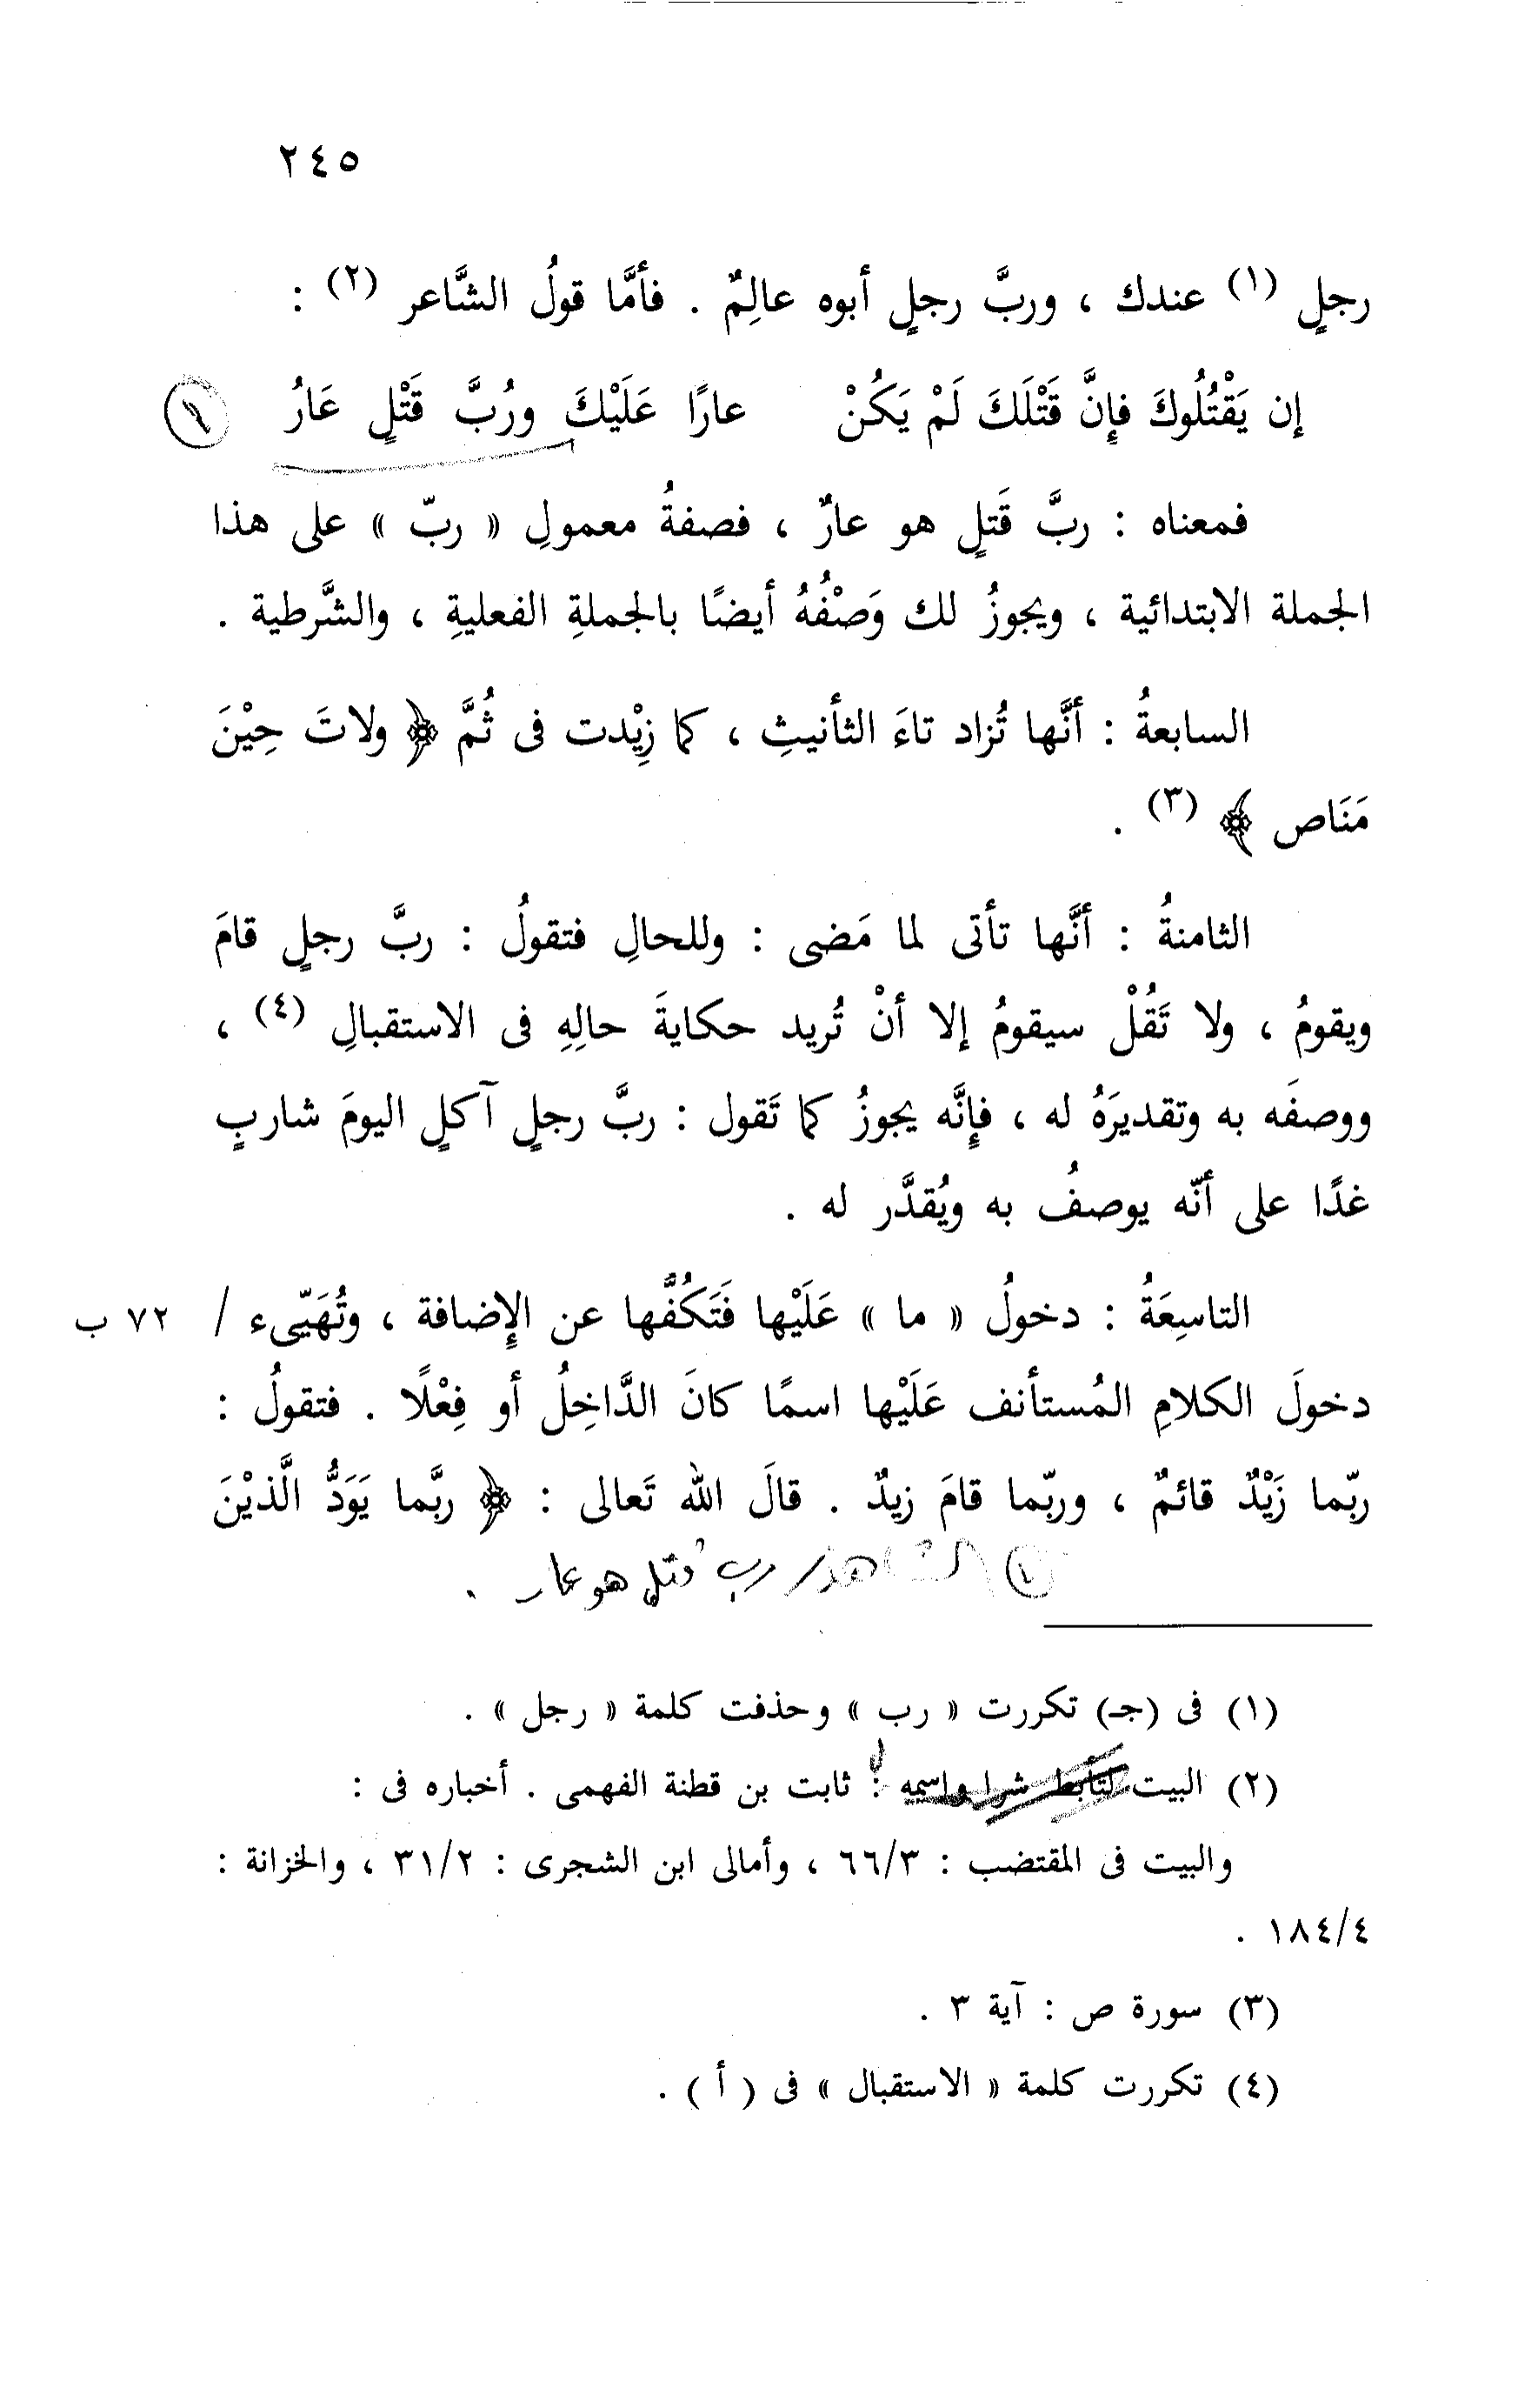 ٢٤٥
رجلٍ (١) عندك ، وربَّ رجلٍ أبوه عالِمٌ . فأمَّا قولُ الشَّاعر (٢) :
إن يَقْتُلُوكَ فإِنَّ قَتْلَكَ لَمْ يَكُنْ عارًا عَلَيْكَ ورُبَّ قَتْلٍ عَارُ (١)
فمعناه : ربَّ قَتلٍ هو عارٌ ، فصفةُ معمولِ « ربّ » على هذا
الجملة الابتدائية ، ويجوزُ لك وَصْفُهُ أيضًا بالجملةِ الفعليةِ ، والشَّرطية .
السابعةُ : أنَّها تُزاد تاءَ الثأنيثِ ، كما زِيْدت فى ثُمَّ ﴿ ولاتَ حِيْنَ
مَنَاص ﴾ (٣) .
الثامنةُ : أنَّها تأتى لما مَضى : وللحالِ فتقولُ : ربَّ رجلٍ قامَ
ويقومُ ، ولا تَقُلْ سيقومُ إلا أنْ تُريد حكايةَ حالِهِ فى الاستقبالِ (٤) ،
ووصفَه به وتقديرَهُ له ، فإِنَّه يجوزُ كما تَقول : ربَّ رجلٍ آكلٍ اليومَ شاربٍ
غدًا على أنّه يوصفُ به ويُقدَّر له .
التاسِعَةُ : دخولُ « ما » عَلَيْها فَتَكُفَّها عن الإِضافة ، وتُهَيّىء / ٧٢ ب
دخولَ الكلامِ المُستأنف عَلَيْها اسمًا كانَ الدَّاخِلُ أو فِعْلًا . فتقولُ :
ربّما زَيْدٌ قائمٌ ، وربّما قامَ زيدٌ . قالَ الله تَعالى : ﴿ ربَّما يَوَدُّ الَّذيْنَ
(١) الشاهد رب قتل هو عار .
(١) فى (جـ) تكررت « رب » وحذفت كلمة « رجل » .
(٢) البيت لتأبط شرا واسمه : ثابت بن قطنة الفهمى . أخباره فى :
والبيت فى المقتضب : ٦٦/٣ ، وأمالى ابن الشجرى : ٣١/٢ ، والخزانة :
١٨٤/٤ .
(٣) سورة ص : آية ٣ .
(٤) تكررت كلمة « الاستقبال » فى ( أ ) .